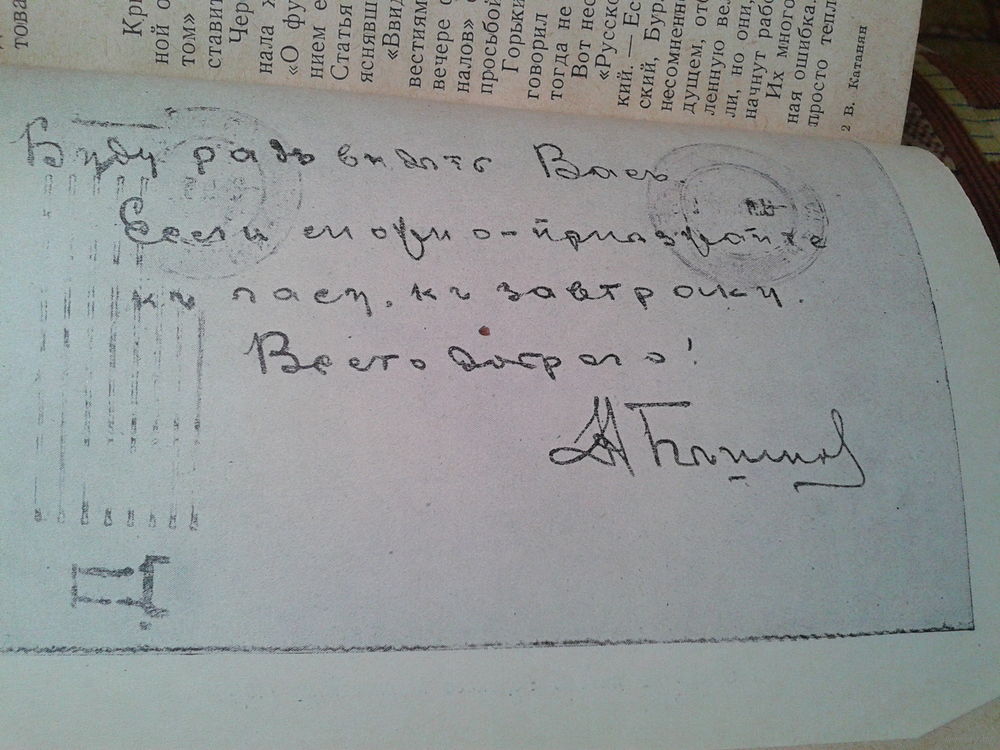 това
ной о
том»
ставит
Чер
«О фу
нием е
Статья
яснявш
«Ввид
вестиям
вечере с
налов» с
просьбой
Горьки
говорил
тогда не
Вот нес
«Русско
кий.— Ес
ский, Бура
несомненно
дущем, ото
ленную вел
ли, но они,
начнут рабо
Их много
ная ошибка.
просто тепл
2 В. Катанян
Буду радъ видѣть Васъ.
Если можно - приѣзжайте
къ часу, къ завтраку.
Всего добраго!
А Пѣшков
Д